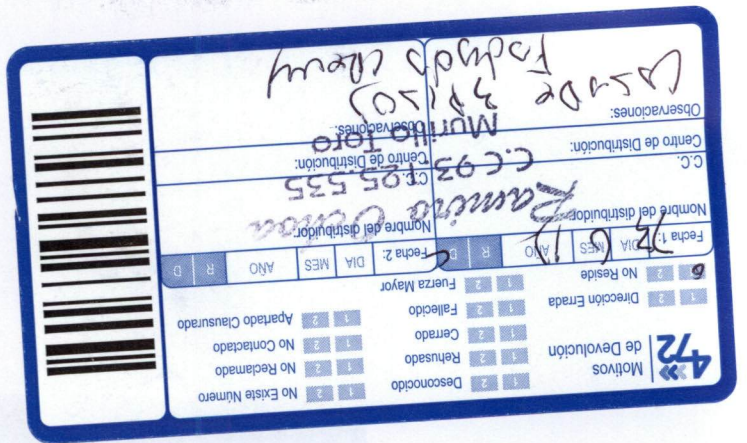 472
Motivos
de Devolución
1 2 Desconocido
1 2 Rehusado
1 2 Cerrado
1 2 Fallecido
1 2 Fuerza Mayor
1 2 No Existe Número
1 2 No Reclamado
1 2 No Contactado
1 2 Apartado Clausurado
1 2 Dirección Errada
1 2 No Reside
Fecha 1: DIA MES AÑO R D
Fecha 2: DIA MES AÑO R D
Nombre del distribuidor:
Ramiro Ochoa
Nombre del distribuidor:
C.C.
C.C 93.195.535
C.C.
Centro de Distribución:
Murillo Toro
Centro de Distribución:
Observaciones:
Casa De 3 Pisos
Observaciones:
Fachada